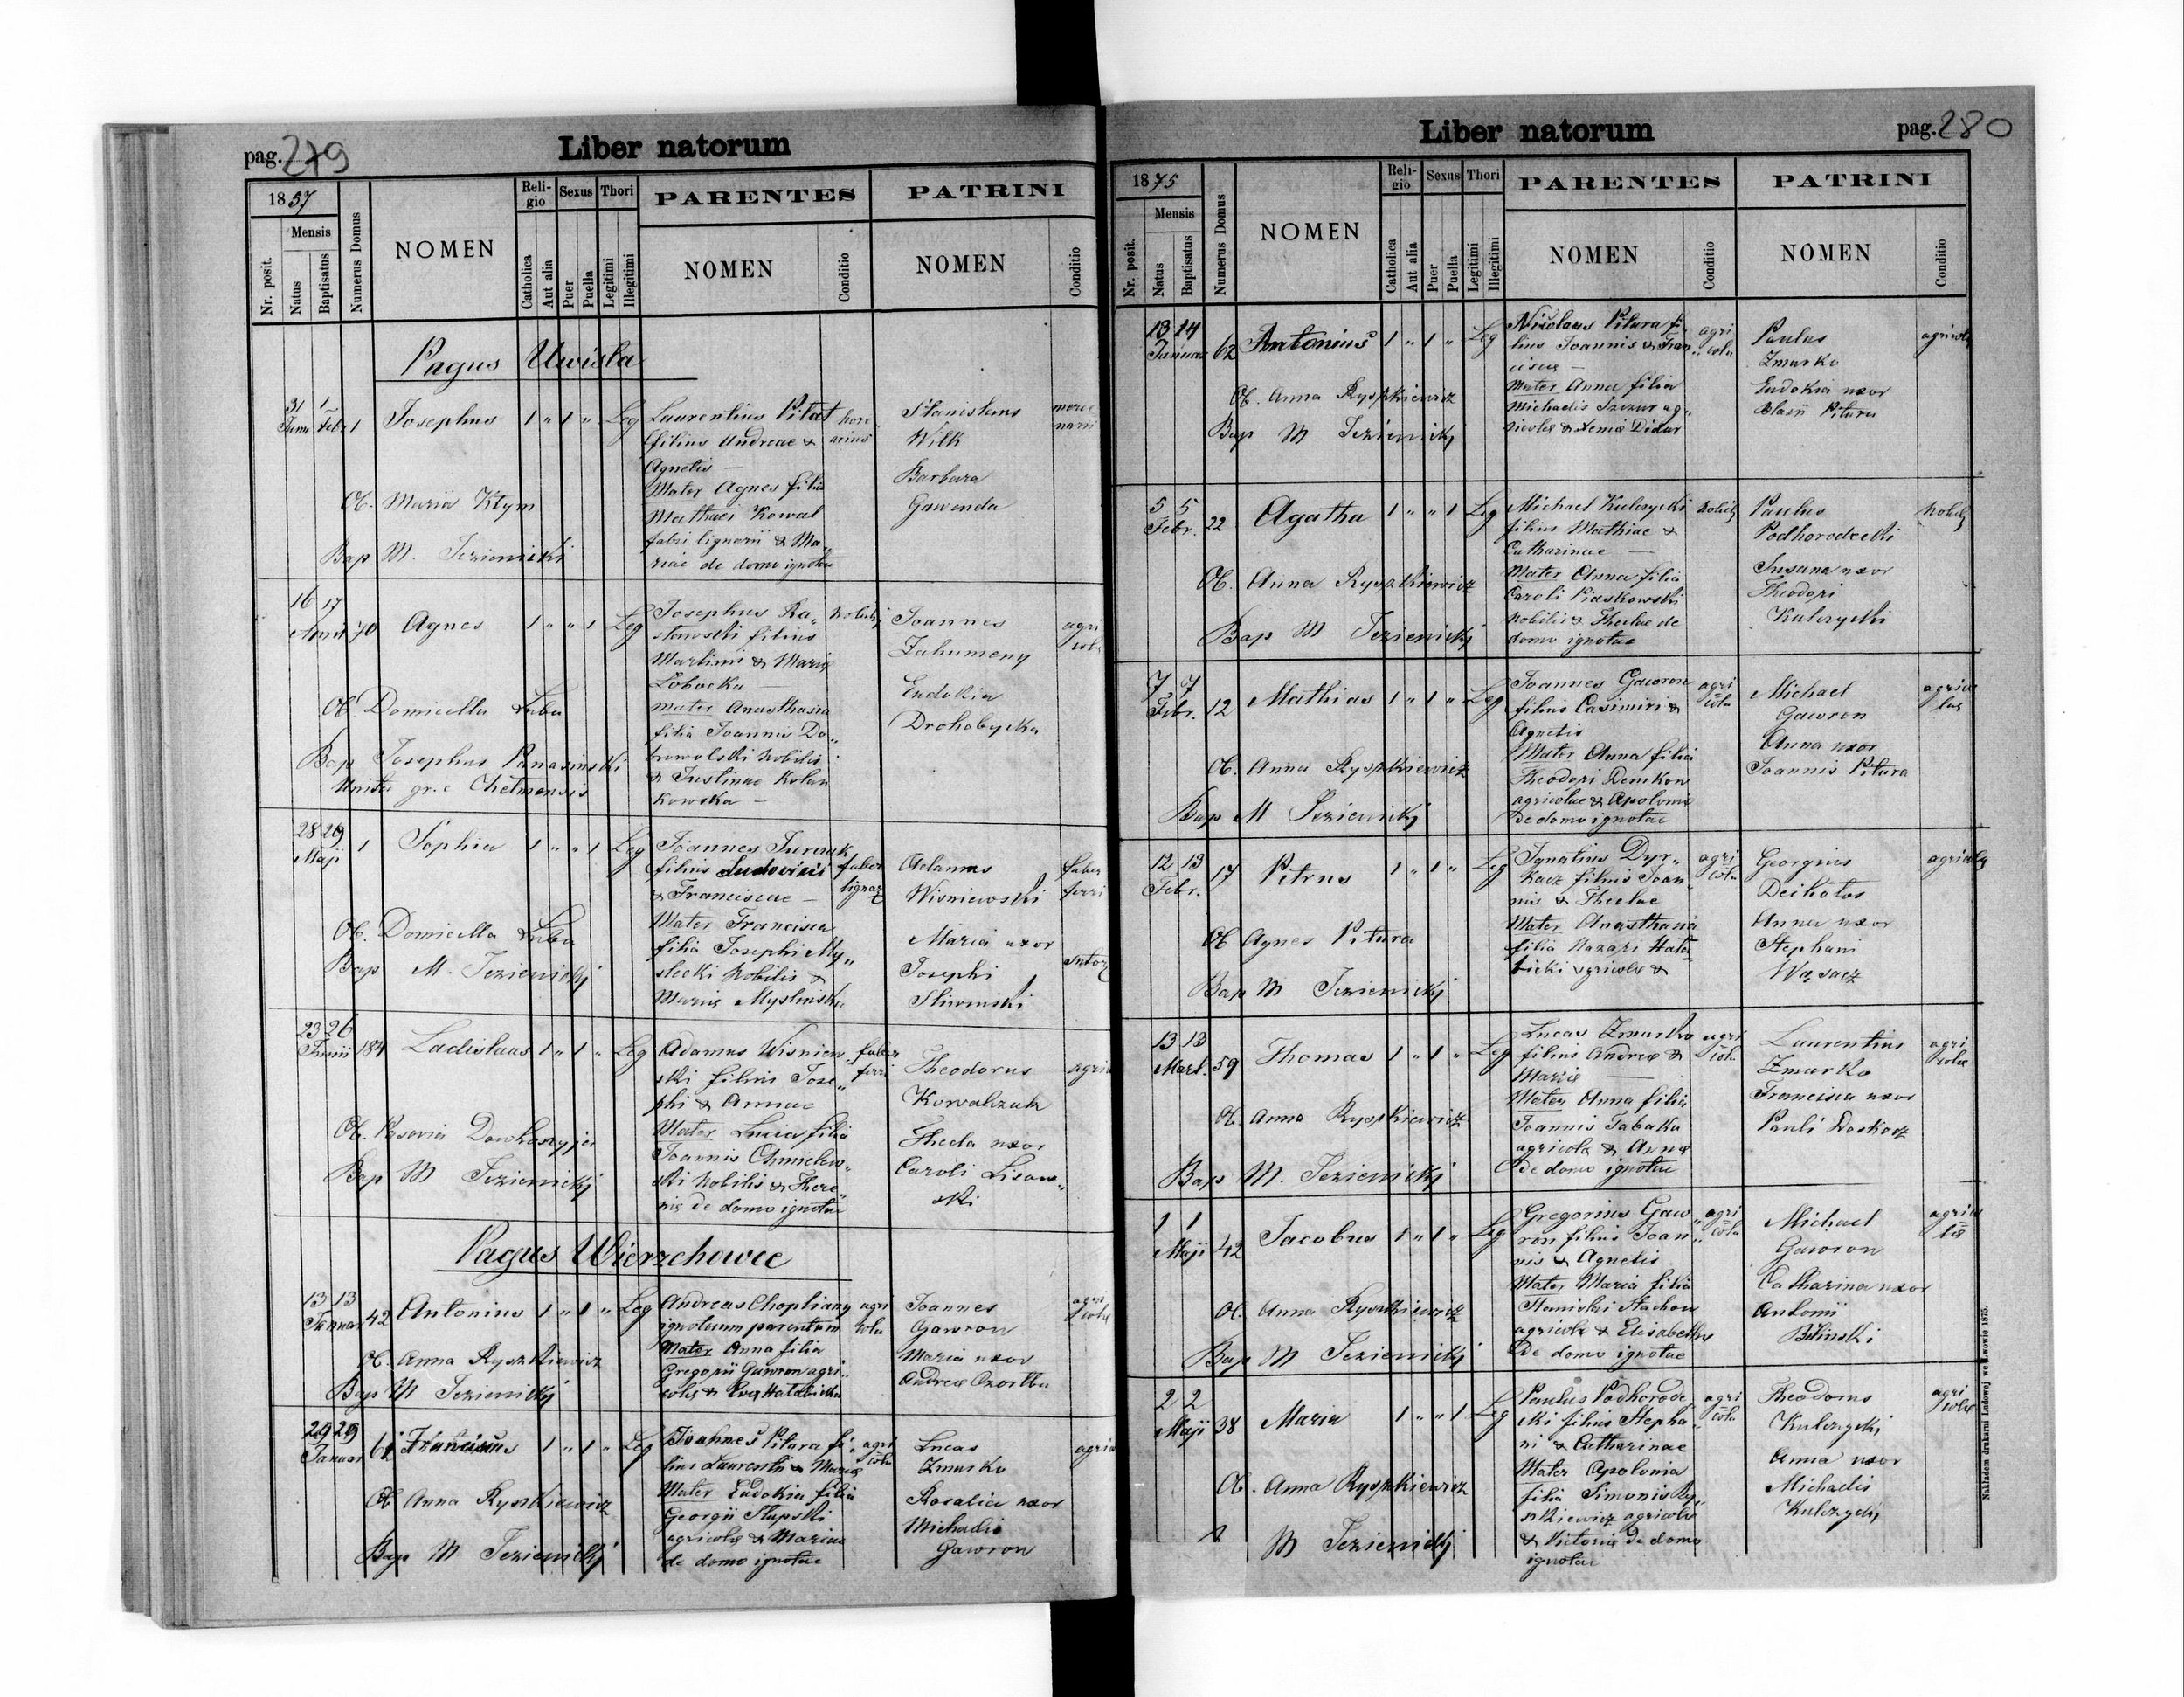 pag. 279
Liber natorum
1857
Nr. posit.
Mensis
Natus
Baptisatus
Numerus Domus
NOMEN
Religio
Catholica
Aut alia
Sexus
Puer
Puella
Thori
Legitimi
Illegitimi
PARENTES
NOMEN
Conditio
PATRINI
NOMEN
Conditio
Pagus Uwisla
31 1
Janu Febr 1
Josephus 1 " 1 " Leg
Laurentius Pitat
filius Andreae &
Agnetis —
Mater Agnes filia
Mathaei Kowal
fabri lignarii & Ma„
riae de domo ignotae
Stanislaus
Wilk
Barbara
Gawenda
Ob. Maria Klym
Bap M. Jezienicki
16 17
70 Agnes 1 " " 1 Leg
Josephus Ra„
stawski filius
Martini & Mariae
Lobocka —
Mater Anasthasia
filia Joannis Do„
browolski Nobilis
& Justinae Kolan
kowska —
Nobilis
Joannes
Zahumeny
Eudokia
Drohobycka
agri
cola
Ob. Domicella Luba
Bap Josephus Panasinski
Unitae gr. c Chelmensis
28 29
Maji 1
Sophia 1 " " 1 Leg
Joannes Turczak
filius Ludovici
& Franciscae —
Mater Francisca
filia Josephi My„
slecki Nobilis &
Mariae Myslinska
faber
lignar
Adamus
Wisniewski
Maria uxor
Josephi
Sliwinski
faber
ferri
sutor
Ob. Domicella Luba
Bap M. Jezienicki
23 26
Junii 184
Ladislaus 1 " 1 " Leg
Adamus Wisniew„
ski filius Jose„
phi & Annae
Mater Lucia filia
Joannis Chmielew„
ski Nobilis & There„
siae de domo ignotae
faber
ferri
Theodorus
Kowalczuk
Thecla uxor
Caroli Lisow„
ski
Bap M Jezienicki
Pagus Wierzchowce
13 13
Januar 42
Antonius 1 " 1 " Leg
Andreas Chopliany
ignotum parentum
Mater Anna filia
Gregorii Gawron agri„
colae & Evae Hatebicka
agri
cola
Joannes
Gawron
Maria uxor
Andreae Ozortba
agri
cola
Ob. Anna Ryszkiewicz
Bap M Jezienicki
29 29
Januar 61
Franciscus 1 " 1 " Leg
Joannes Pitura fi„
lius Laurentii & Mariae
Mater Eudokia filia
Georgii Slupski
agricolae & Mariae
de domo ignotae
agri
cola
Lucas
Zmurko
Rosalia uxor
Michaelis
Gawron
Ob Anna Ryszkiewicz
Bap M Jezienicki
Liber natorum
pag. 280
1875
Nr. posit.
Mensis
Natus
Baptisatus
Numerus Domus
NOMEN
Religio
Catholica
Aut alia
Sexus
Puer
Puella
Thori
Legitimi
Illegitimi
PARENTES
NOMEN
Conditio
PATRINI
NOMEN
Conditio
13 14
Januar 62
Antonius 1 " 1 " Leg
Nicolaus Pitura fi„
lius Joannis & Fran„
ciscae —
Mater Anna filia
Michaelis Szczur ag„
ricolae & Xeniae Didur
agri
cola
Paulus
Zmurko
Eudokia uxor
Blasii Pitura
agricola
Ob. Anna Ryszkiewicz
Bap M Jezienicki
5 5
Febr. 22
Agatha 1 " " 1 Leg
Michael Kulczycki
filius Mathiae &
Catharinae —
Mater Anna filia
Caroli Piaskowski
Nobilis & Theclae de
domo ignotae
Nobilis
Paulus
Podhorodecki
Susana uxor
Theodori
Kulczycki
Nobilis
Ob. Anna Ryszkiewicz
Bap M Jezienicki
7 7
Febr. 12
Mathias 1 " 1 " Leg
Joannes Gawron
filius Casimiri &
Agnetis
Mater Anna filia
Theodori Demkow
agricolae & Apoloniae
de domo ignotae
agri
cola
Michael
Gawron
Anna uxor
Joannis Pitura
agrico
lae
Ob. Anna Ryszkiewicz
Bap M Jezienicki
12 13
Febr. 17
Petrus 1 " 1 " Leg
Ignatius Dyr„
kacz filius Joan„
nis & Theclae
Mater Anasthasia
filia Nazari Hate
bicki agricolae &
agri
cola
Georgius
Deikolos
Anna uxor
Stephani
Wąsacz
agricola
Ob Agnes Pitura
Bap M Jezienicki
13 13
Mart. 59
Thomas 1 " 1 " Leg
Lucas Zmurko
filius Andreae &
Mariae —
Mater Anna filia
Joannis Tabaka
agricola & Annae
de domo ignotae
agri
cola
Laurentius
Zmurko
Francisca uxor
Pauli Doskocz
agri
colae
Ob. Anna Ryszkiewicz
Bap M. Jezienicki
1 1
Maji 42
Jacobus 1 " 1 " Leg
Gregorius Gaw„
ron filius Joan„
nis & Agnetis
Mater Maria filia
Stanislai Stachow
agricolae & Elisabethae
de domo ignotae
agri
cola
Michael
Gawron
Catharina uxor
Antonii
Bilinski
agrico
lae
Ob. Anna Ryszkiewicz
Bap M Jezienicki
2 2
Maji 38
Maria 1 " " 1 Leg
Paulus Podhorode„
cki filius Stepha„
ni & Catharinae
Mater Apolonia
filia Simonis Ry„
szkiewicz agricolae
& Victoriae de domo
ignotae
agri
cola
Theodorus
Kulczycki
Anna uxor
Michaelis
Kulczycki
agri
colae
Ob. Anna Ryszkiewicz
M Jezienicki
Nakładem drukarni Ludowej we Lwowie 1875.